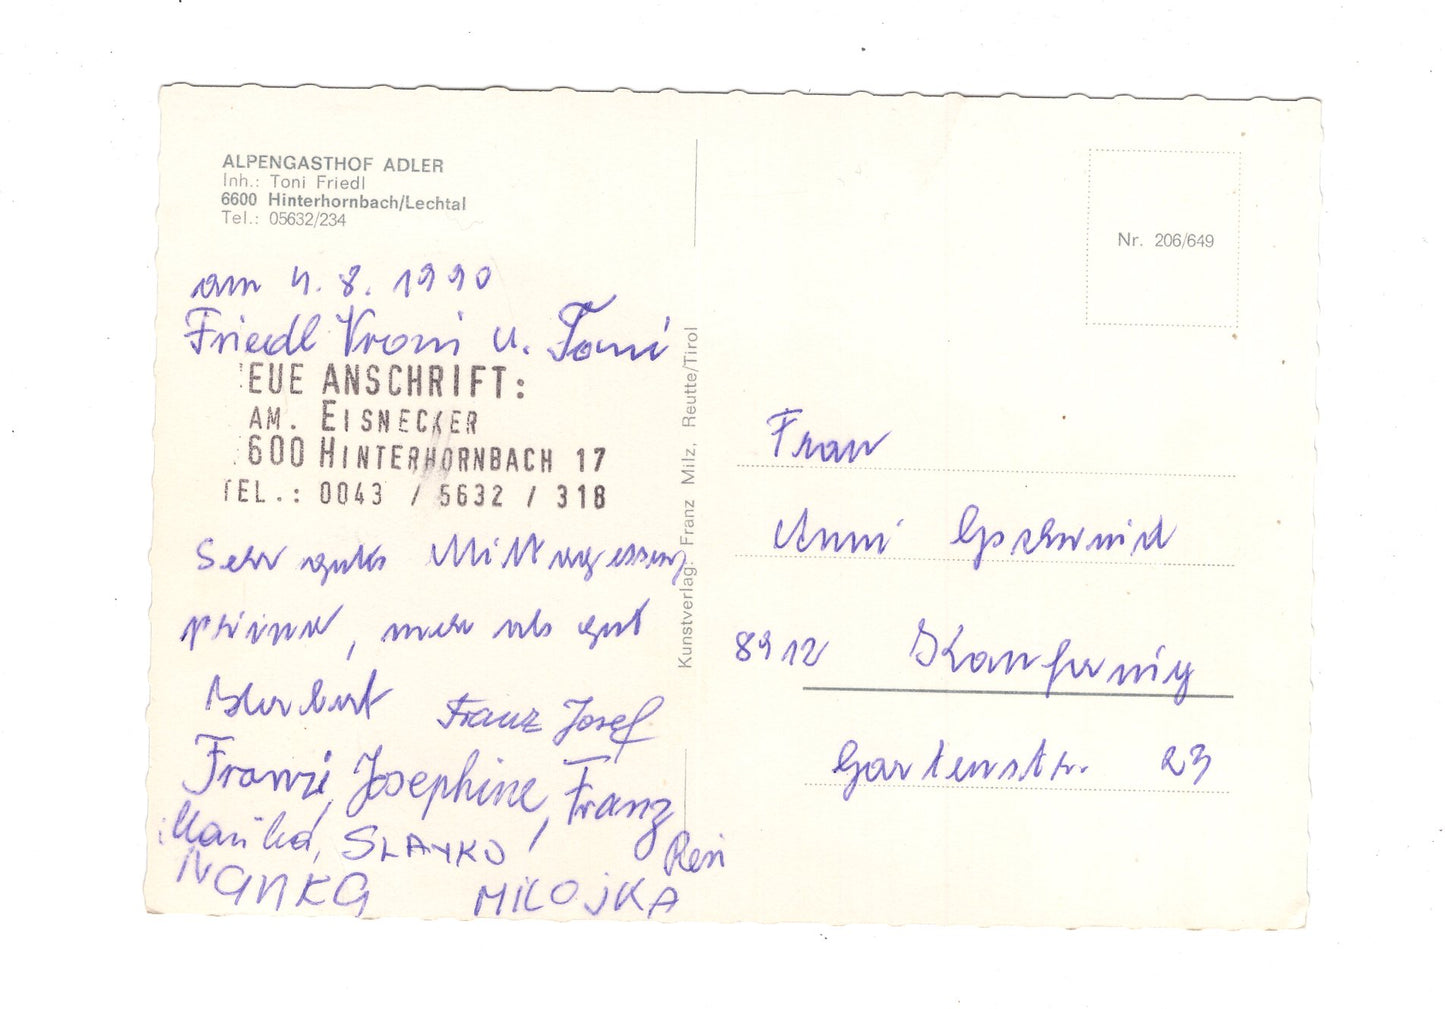 ALPENGASTHOF ADLER
Inh.: Toni Friedl
6600 Hinterhornbach/Lechtal
Tel.: 05632/234
am 4.8.1990
Friedl Vroni u. Toni
EUE ANSCHRIFT:
AM. EISNECKER
600 HINTERHORNBACH 17
TEL.: 0043 / 5632 / 318
Sehr gutes Mittagessen
prima, mehr als gut
Herbert Franz Josef
Franzi, Josephine, Franz
Marika, SLAVKO, Resi
NANKA MILOJKA
Kunstverlag: Franz Milz, Reutte/Tirol
Nr. 206/649
Frau
Anni Gschwind
8912 Kaufering
Gartenstr. 23